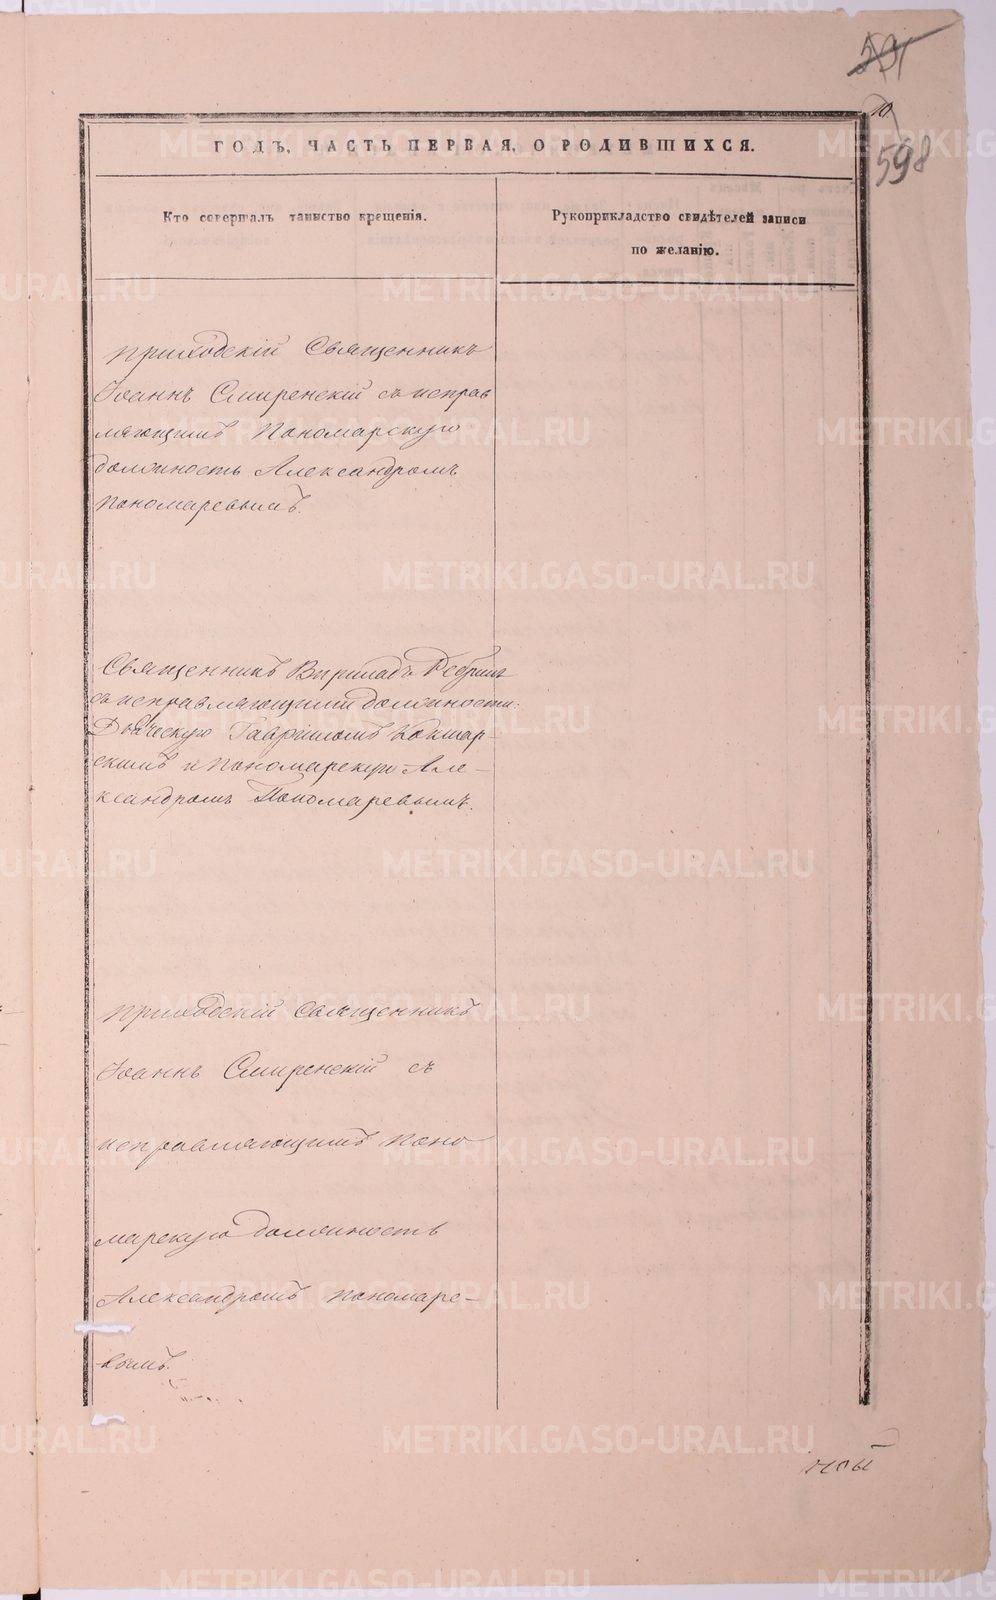 591
10
598
ГОДЪ, ЧАСТЬ ПЕРВАЯ, О РОДИВШИХСЯ.
Кто совершалъ таинство крещенія.
Рукоприкладство свидѣтелей записи
по желанію.
приходскій Священникъ
Іоаннъ Смиренскій съ исправ
ляющимъ Пономарскую
должность Александромъ
Пономаревымъ.
Священникъ
съ исправляющими должности:
Дьяческую Гавріиломъ
скимъ и Пономарскую Але-
ксандромъ Пономаревымъ.
приходскій священникъ
Іоаннъ Смиренскій съ
исправляющимъ поно
марскую должность
Александромъ Пономаре-
вымъ.
METRIKI.GASO-URAL.RU